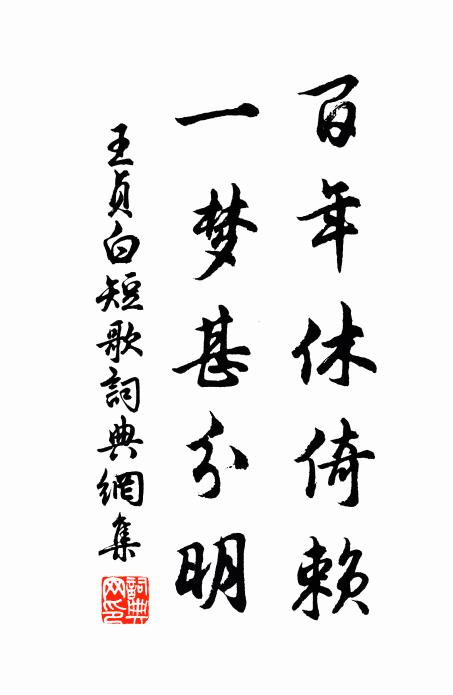 百年休倚赖
一梦甚分明
王贞白短歌詞典網集
詞典網印